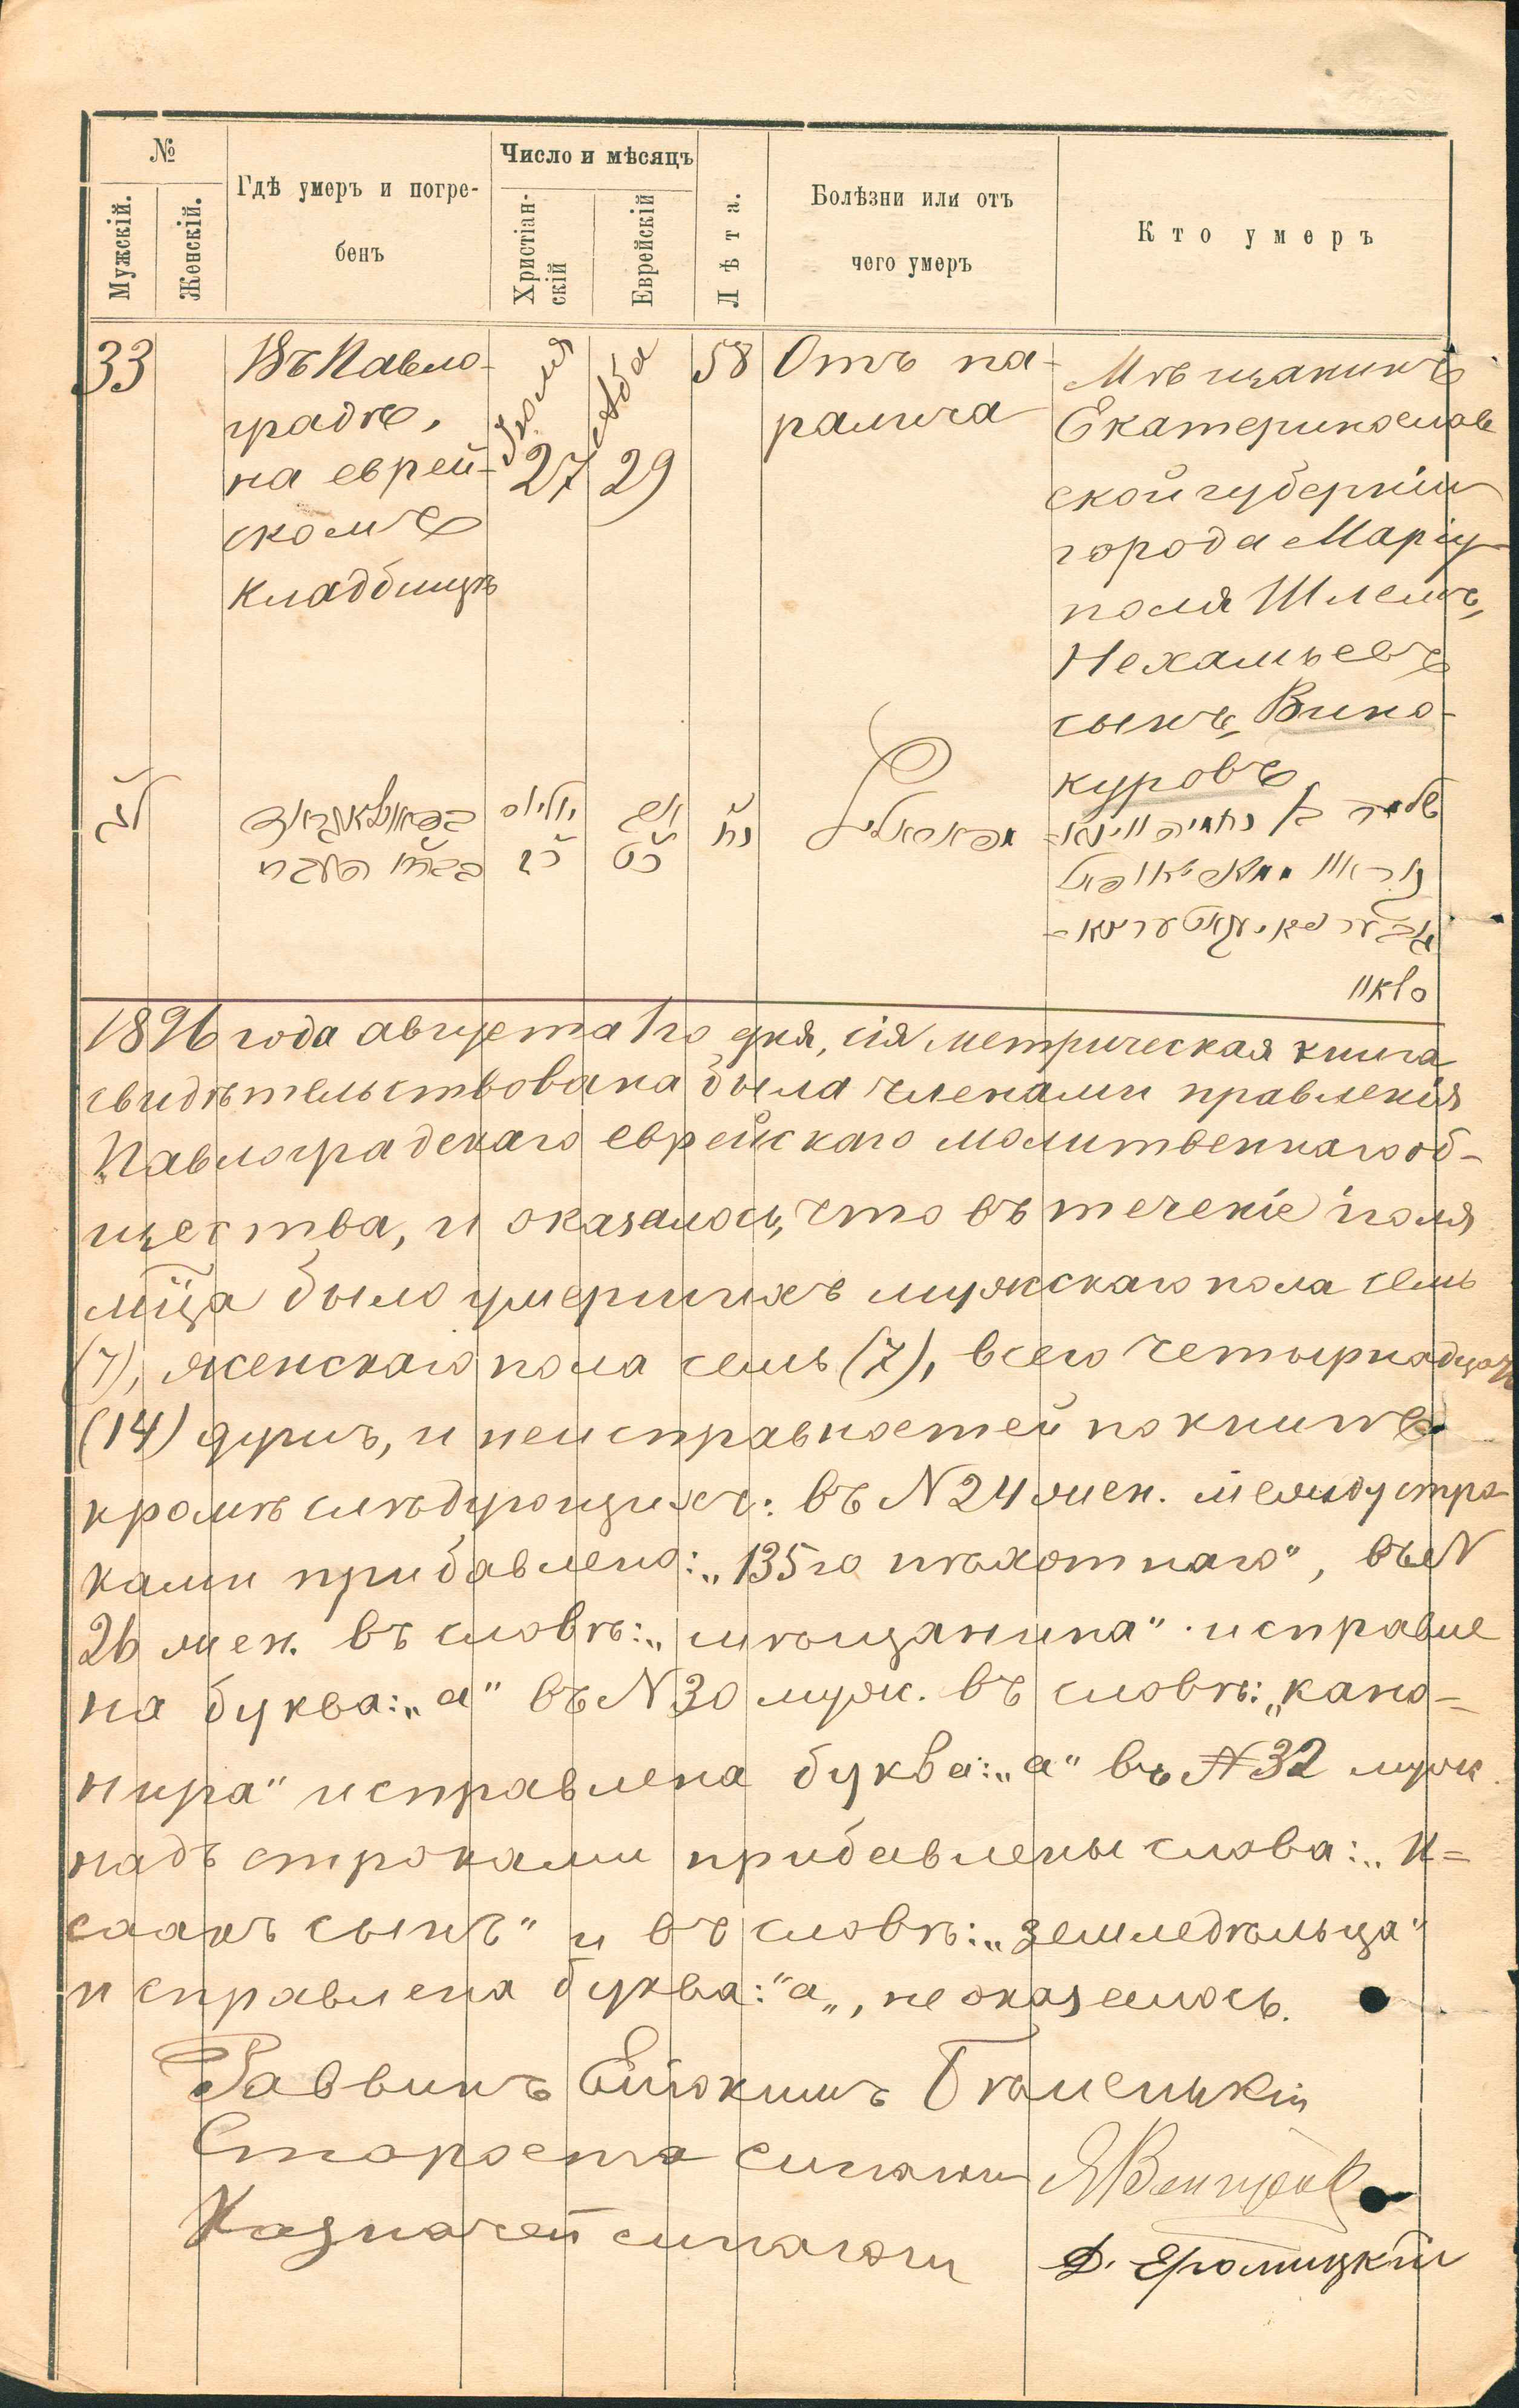 №
Мужскій.
Женскій.
Гдѣ умеръ и погре-
бенъ
Число и мѣсяцъ
Христіан-
скій
Еврейскій
Лѣта.
Болѣзни или отъ
чего умеръ
Кто умеръ
33
Въ Павло-
градѣ,
на еврей-
скомъ
кладбищѣ
Іюля
27
Аба
29
58
Отъ па-
ралича
Мѣщанинъ
Екатеринослав
ской губерніи
города Маріу-
поля Шлема
Нехамьевъ
сынъ, Вино-
куровъ
לג
יוליא
כז
אב
כט
נח
1896 года августа 1го дня, сія метрическая книга
свидѣтельствована была членами правленія
Павлоградскаго еврейскаго молитвеннаго об-
щества, и оказалось, что въ теченіе іюля
мѣца было умершихъ мужскаго пола семь
(7), женскаго пола семь (7), всего четырнадцать
(14) душъ, и неисправностей по книгѣ
кромѣ слѣдующихъ: въ N 24 жен. между стро-
ками прибавлено: „135го пѣхотнаго", въ N
26 жен. въ словѣ: „мѣщанина" исправле
на буква: „а" въ N 30 муж. въ словѣ: „кано-
нира" исправлена буква: „а" въ N 32 муж.
надъ строками прибавлены слова: „И=
саакъ сынъ" и въ словѣ: „земледѣльца"
исправлена буква: "а„, не оказалось.
Раввинъ
Староста синагоги
Казначей синагоги